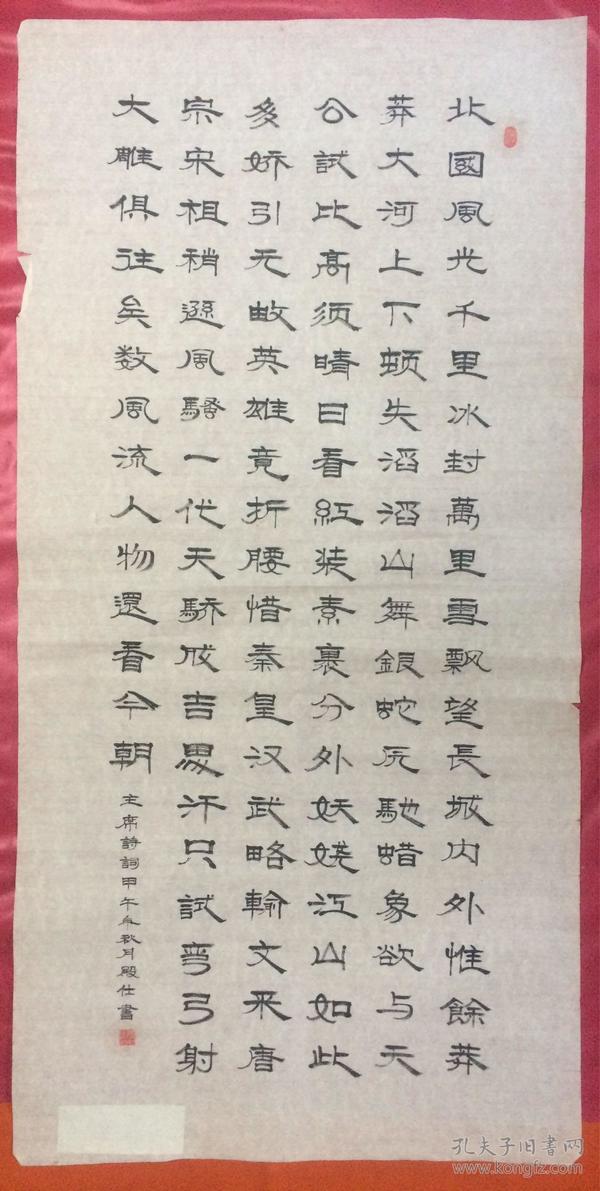 北國風光千里冰封萬里雪飘望長城内外惟餘莽
莽大河上下顿失滔滔山舞銀蛇原馳蜡象欲与天
公試比高须晴日看紅装素裹分外妖娆江山如此
多娇引无故英雄竟折腰惜秦皇汉武略輸文采唐
宗宋祖稍遜風騷一代天骄成吉思汗只試弯弓射
大雕俱往矣数風流人物還看今朝
主席詩詞甲午年秋月殿仕書
孔夫子旧書网
www.kongfz.com